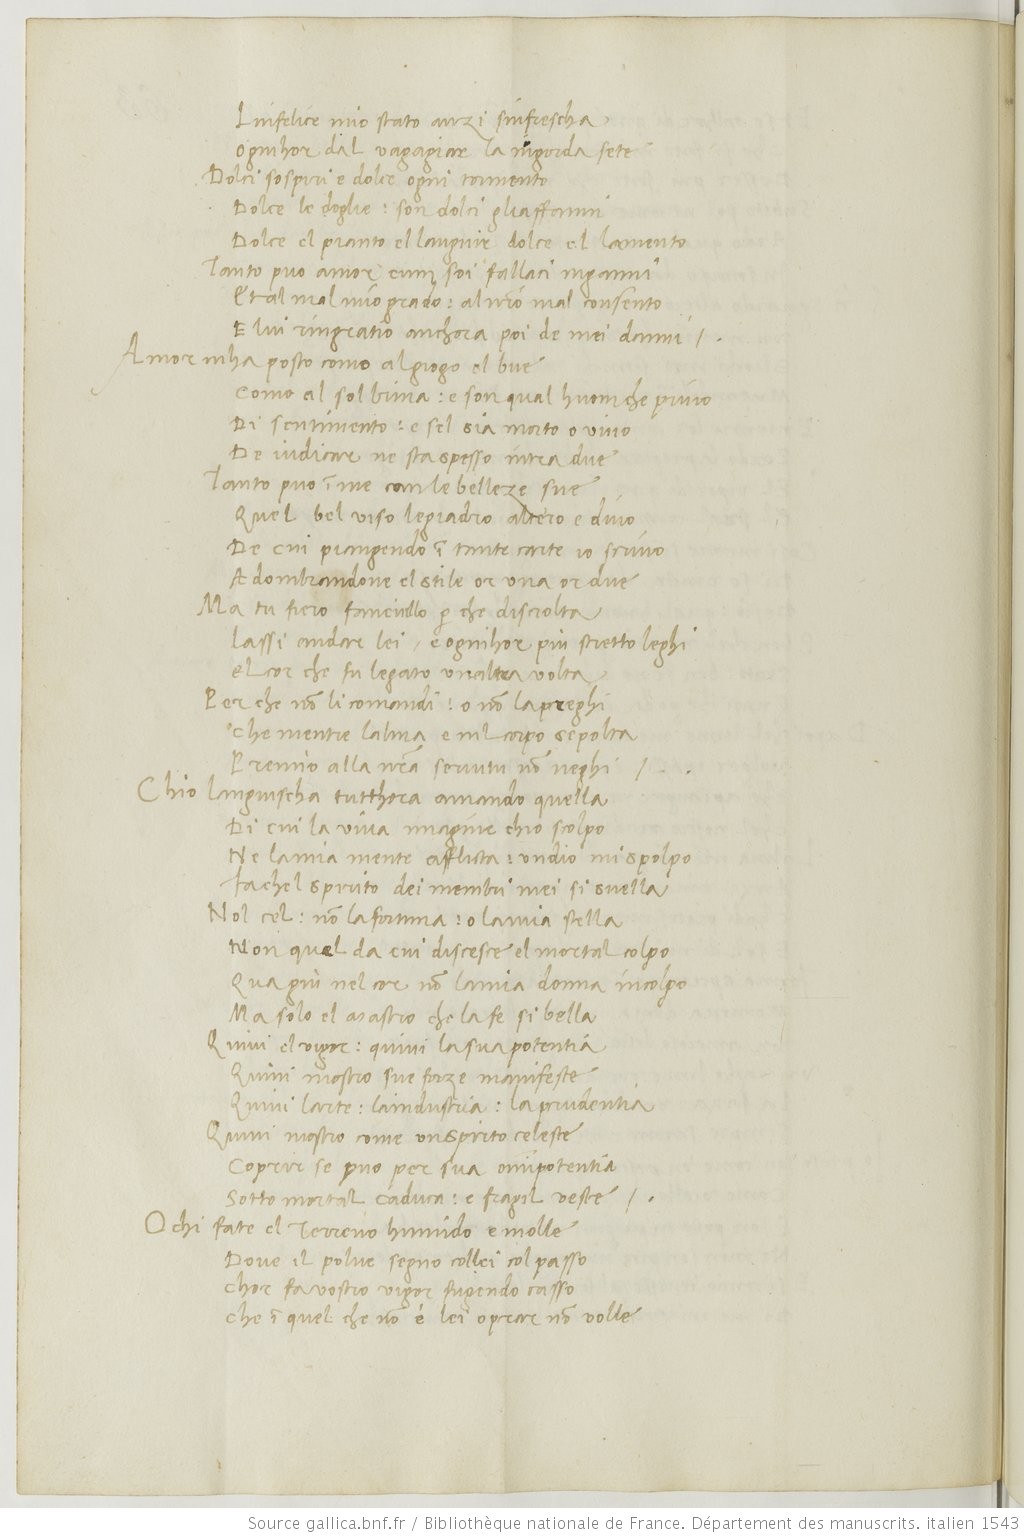 Linfelice mio stato anzi sinfrescha
Ognihor dal vagagiar la ingorda sete
Dolci sospiri e dolce ogni tormento
Dolce le doglie : son dolci gliaffanni
Dolce el pianto el languir dolce el lamento
Tanto puo amor cum soi fallaci inganni
Et al mal mio grado : al mio mal consento
E lui ringratio anchora poi de mei danni /.
Amor mha posto como al giogo el bue
Como al sol brina : e son qual huom che privo
Di sentimento : e sel sia morto o vivo
De iudicar ne sta spesso intra due
Tanto puo ī me con le belleze sue
Quel bel viso legiadro altero e divo
De cui piangendo ī tante carte io scrivo
Adombrandone el stile or una or due
Ma tu fiero fanciullo p̱ che disciolta
Lassi andar lei / e ognihor piu stretto leghi
El cor che fu legato unaltra volta
Per che nō li comandi : o nō la preghi
Che mentre lalma e nil corpo sepolta
Premio alla nr̄a servitu nō neghi /..
Chio languischa tutthora amando quella
Di cui la viva imagine chio scolpo
Ne la mia mente afflicta : ondio mi spolpo
Fa chel spirito dei membri mei si svella
Nol cel : nō la fortuna : o la mia stella
Non quel da cui discesce el mortal colpo
Qua giu nel cor nō la mia donna incolpo
Ma solo el mastro che la fe si bella
Quivi el vigor : quivi la sua potentia
Quivi mostro sue forze manifeste
Quivi larte : laindustria : la prudentia
Quivi mostro come un spirito celeste
Coprir se puo per sua omnipotentia
Sotto mortal caduca : e fragil veste /.
Ochi fate el terreno humido e molle
Dove il polve segno collei col passo
Chor fa vostro vigor fugendo casso
Che ī quel che nō é lei oprar nō volle
Source gallica.bnf.fr / Bibliothèque nationale de France. Département des manuscrits. italien 1543